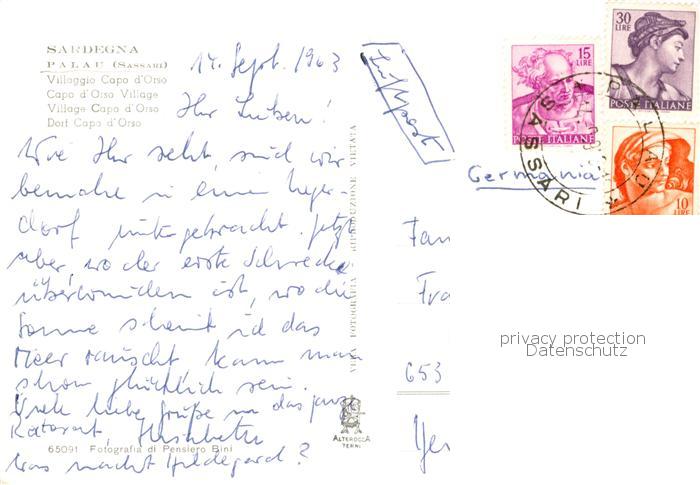 SARDEGNA
PALAU (SASSARI)
Villaggio Capo d'Orso
Capo d'Orso Village
Village Capo d'Orso
Dorf Capo d'Orso
14. Sept. 1963
Luftpost
Ihr Lieben!
Wie Ihr seht, sind wir
beinahe in einem Neger-
dorf untergebracht. Jetzt
aber, wo der erste Schreck
überwunden ist, wo die
Sonne scheint und das
Meer rauscht, kann man
schon glücklich sein.
Viele liebe Grüße an das ganze
Elisabeth
Was macht Hildegard?
65091 Fotografia di Pensiero Bini
VERA FOTOGRAFIA - RIPRODUZIONE VIETATA
ALTEROCCA
TERNI
15
LIRE
POSTE ITALIANE
30
LIRE
POSTE ITALIANE
10
LIRE
PALAU
SASSARI
Germania
Fam
653
privacy protection
Datenschutz